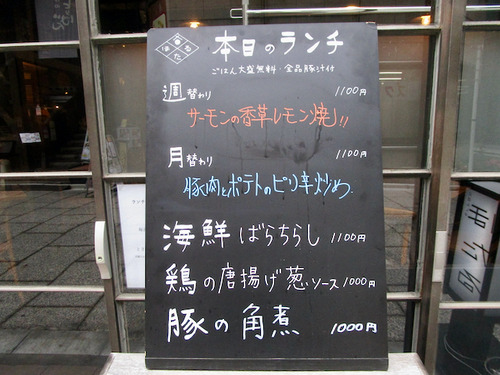 本日のランチ
ごはん大盛無料・全品豚汁付
週替わり 1100円
サーモンの香草レモン焼き!!
月替わり 1100円
豚肉とポテトのピリ辛炒め
海鮮ばらちらし 1100円
鶏の唐揚げ葱ソース 1000円
豚の角煮 1000円